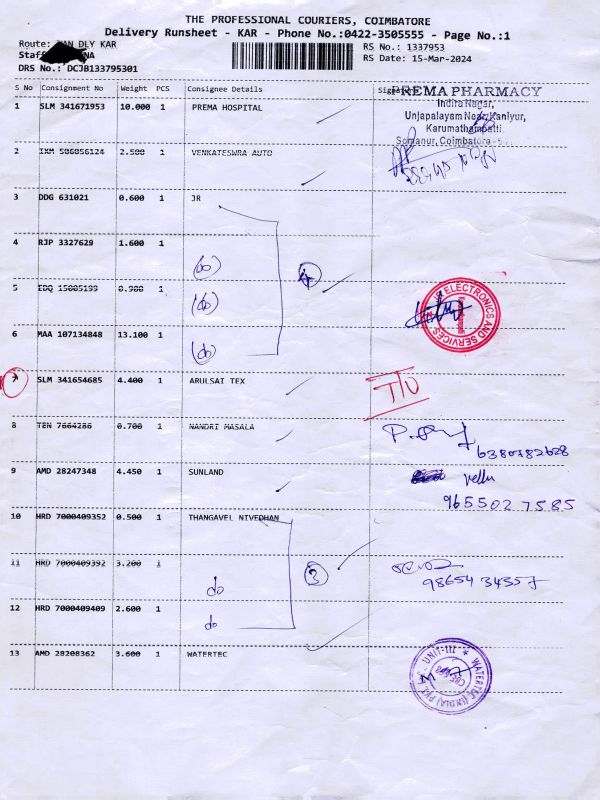 THE PROFESSIONAL COURIERS, COIMBATORE
Delivery Runsheet - KAR - Phone No.:0422-3505555 - Page No.:1
Route: DLY KAR
RS No.: 1337953
Staff
RS Date: 15-Mar-2024
DRS No.: DCJB133795301
S No Consignment No Weight PCS Consignee Details Signature
PREMA PHARMACY
Indira Nagar,
Unjapalayam Near, Kaniyur,
Karumathampatti,
Somanur, Coimbatore
1 SLM 341671953 10.000 1 PREMA HOSPITAL
2 IXM 506056124 2.500 1 VENKATESWRA AUTO
3 DDG 631021 0.600 1 JR
4 RJP 3327629 1.600 1 (do)
4
5 EDQ 15005199 0.900 1 (do)
ELECTRONICS AND SERVICES
6 MAA 107134848 13.100 1 (do)
7 SLM 341654685 4.400 1 ARULSAI TEX
8 TEN 7664286 0.700 1 NANDRI MASALA
6380782628
9 AMD 28247348 4.450 1 SUNLAND
Vellu
9655027585
10 HRD 7000409352 0.500 1 THANGAVEL NIVEDHAN
11 HRD 7000409392 3.200 1 do
3
98654 34357
12 HRD 7000409409 2.600 1 do
13 AMD 28208362 3.600 1 WATERTEC
WATERTEC (INDIA) PVT LTD - UNIT-III